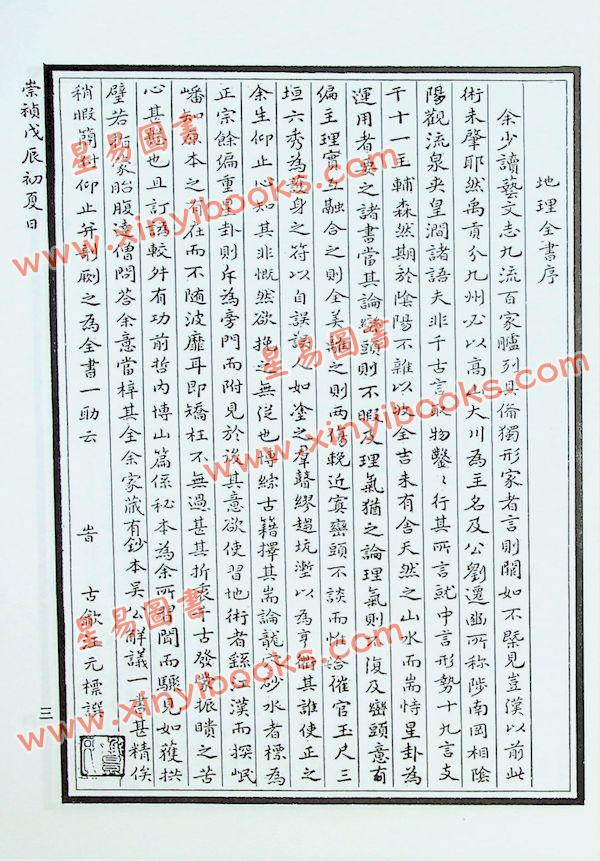 地理全書序
余少讀藝文志九流百家臚列具俻獨形家者言則闕如不槩見豈漢以前此
術未肇耶然禹貢分九州必以高山大川為主名及公劉遷豳所称陟南岡相陰
陽觀流泉夹皇澗諸語夫非千古言取物鑿〻行其所言就中言形勢十九言支
干十一主輔森然期於陰陽不雜以收全吉未有舍天然之山水而耑恃星卦為
運用者英之諸書當其論巒頭則不暇及理氣猶之論理氣則不復及巒頭意有
偏主理實互融合之則全美離之則两傷輓近寘巒頭不談而惟詒催官玉尺三
垣六秀為護身之符以自誤誤人如塗之羣瞽繆趨坑壍以為亨衢其誰使正之
余生仰止心知其非慨然欲挽之無従也博綜古籍擇其耑論龍穴砂水者標為
正宗餘編重星卦則斥為旁門而附見於後其意欲使習地術者繇江漢而探岷
嶓知原本之有在而不随波靡耳即矯枉不無過甚其折衷千古發蒙振聵之苦
心甚懃也且訂訛較舛有功前哲内博山篇係秘本為余所習聞而驟見如獲拱
璧若拆家胎腹逹僧問答余意當梓其全余家蔵有鈔本吴公解議一書甚精俟
稍暇簡付仰止并剞劂之為全書一助云
崇禎戊辰初夏日
旹 古歙汪元標譔
三
星易圖書
www.xinyibooks.com
星易圖書
www.xinyibooks.com
星易圖書
www.xinyibooks.com